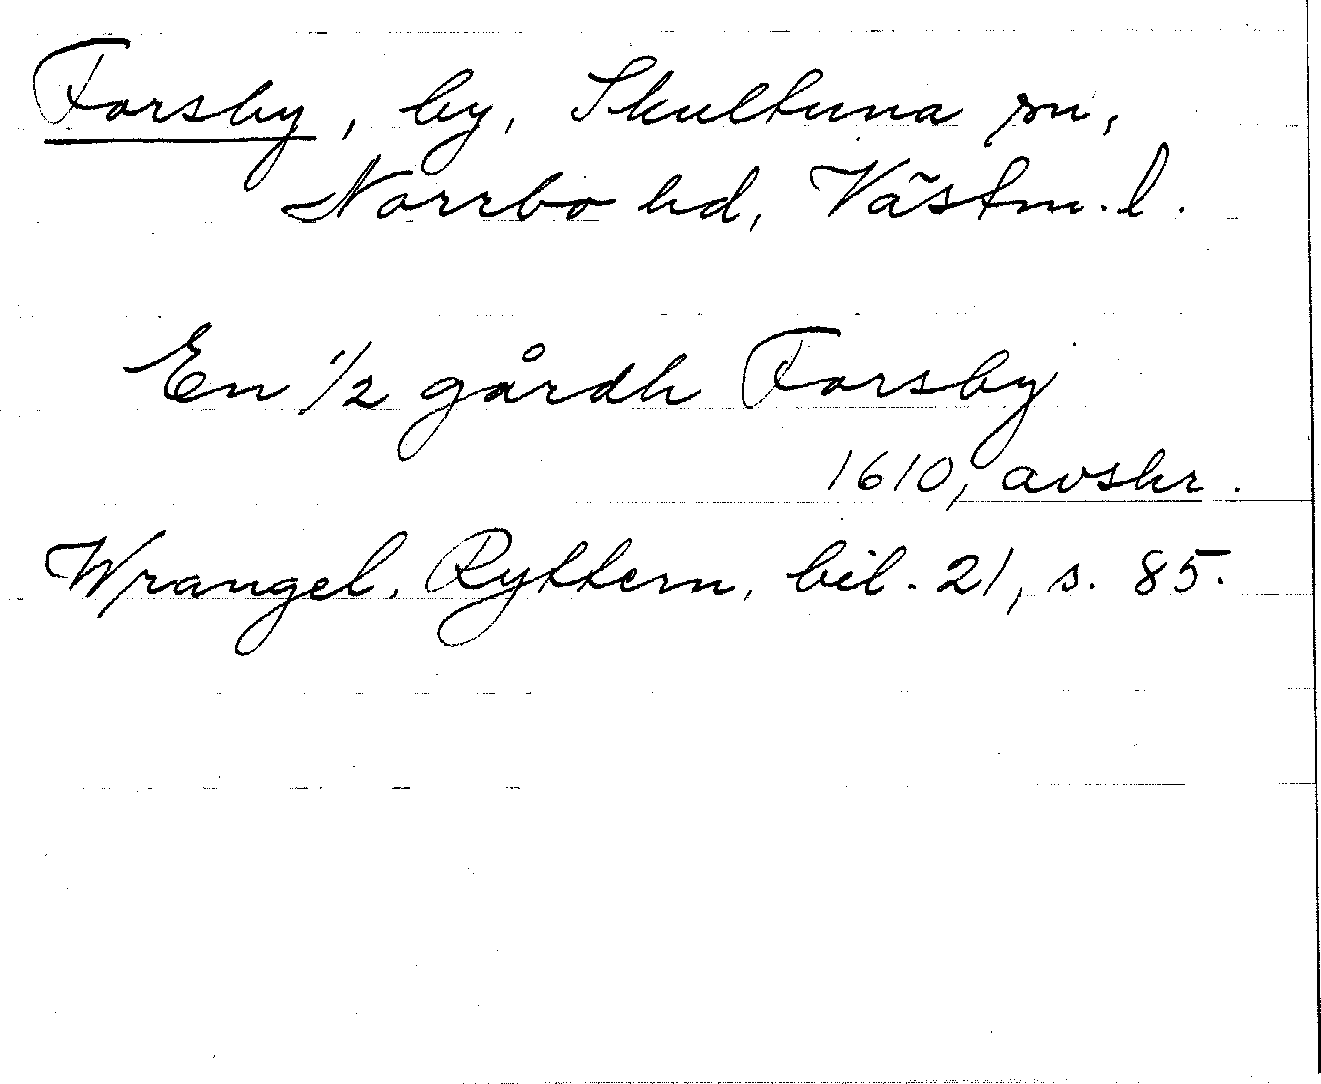 Forsby, by, Skultuna sn,
Norrbo hd, Västm. l.
En 1/2 gårdh Forsby
1610, avskr.
Wrangel, Ryttern, bil. 21, s. 85.